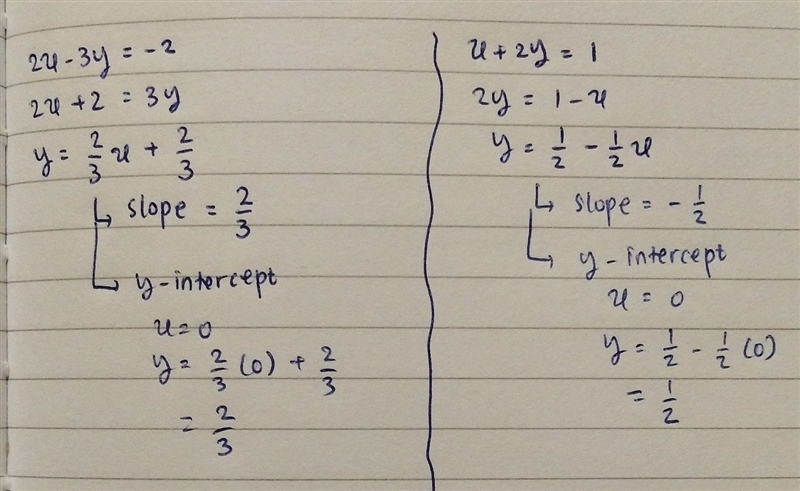 2x - 3y = -2
2x + 2 = 3y
y = 2/3 x + 2/3
↳ slope = 2/3
↳ y-intercept
x = 0
y = 2/3 (0) + 2/3
= 2/3
x + 2y = 1
2y = 1 - x
y = 1/2 - 1/2 x
↳ slope = - 1/2
↳ y-intercept
x = 0
y = 1/2 - 1/2 (0)
= 1/2